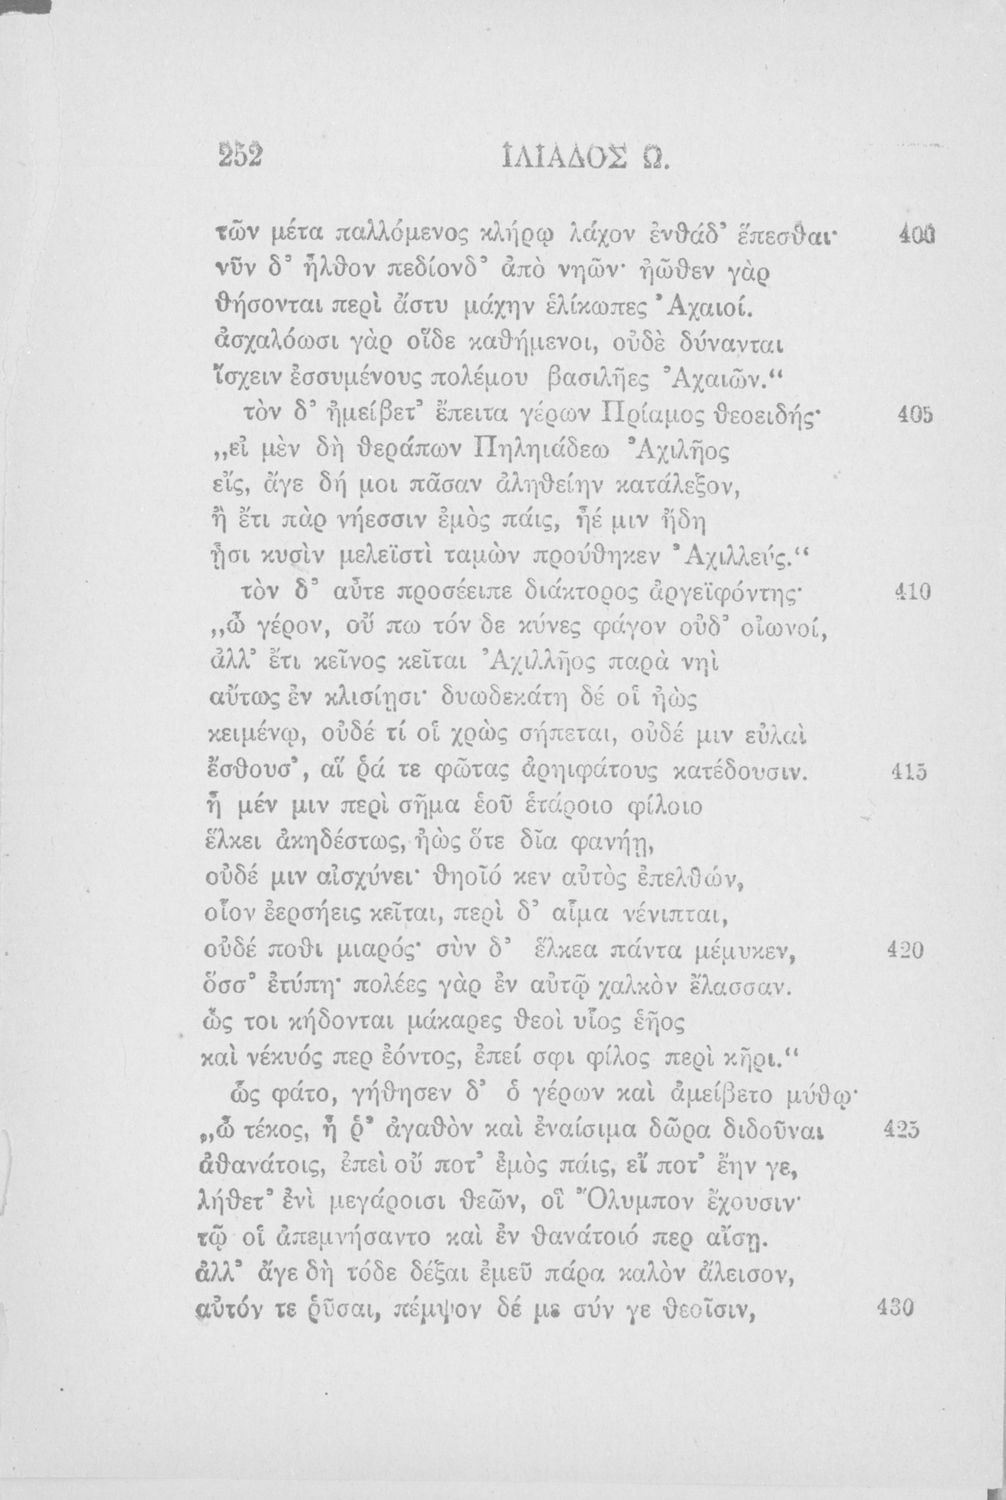 252 ἸΛΙΑΔΟΣ Ω.
τῶν μέτα παλλόμενος κλήρῳ λάχον ἐνθάδ᾽ ἕπεσθαι· 400
νῦν δ᾽ ἦλθον πεδίονδ᾽ ἀπὸ νηῶν· ἠῶθεν γὰρ
θήσονται περὶ ἄστυ μάχην ἑλίκωπες Ἀχαιοί.
ἀσχαλόωσι γὰρ οἵδε καθήμενοι, οὐδὲ δύνανται
ἴσχειν ἐσσυμένους πολέμου βασιλῆες Ἀχαιῶν.“
τὸν δ᾽ ἠμείβετ᾽ ἔπειτα γέρων Πρίαμος θεοειδής· 405
„εἰ μὲν δὴ θεράπων Πηληιάδεω Ἀχιλῆος
εἴς, ἄγε δή μοι πᾶσαν ἀληθείην κατάλεξον,
ἢ ἔτι πὰρ νήεσσιν ἐμὸς πάις, ἦέ μιν ἤδη
ᾗσι κυσὶν μελεϊστὶ ταμὼν προύθηκεν Ἀχιλλεύς.“
τὸν δ᾽ αὖτε προσέειπε διάκτορος ἀργεϊφόντης· 410
„ὦ γέρον, οὔ πω τόν δε κύνες φάγον οὐδ᾽ οἰωνοί,
ἀλλ᾽ ἔτι κεῖνος κεῖται Ἀχιλλῆος παρὰ νηὶ
αὔτως ἐν κλισίῃσι· δυωδεκάτη δέ οἱ ἠὼς
κειμένῳ, οὐδέ τί οἱ χρὼς σήπεται, οὐδέ μιν εὐλαὶ
ἔσθουσ᾽, αἵ ῥά τε φῶτας ἀρηιφάτους κατέδουσιν. 415
ἦ μέν μιν περὶ σῆμα ἑοῦ ἑτάροιο φίλοιο
ἕλκει ἀκηδέστως, ἠὼς ὅτε δῖα φανήῃ,
οὐδέ μιν αἰσχύνει· θηοῖό κεν αὐτὸς ἐπελθών,
οἷον ἐερσήεις κεῖται, περὶ δ᾽ αἷμα νένιπται,
οὐδέ ποθι μιαρός· σὺν δ᾽ ἕλκεα πάντα μέμυκεν, 420
ὅσσ᾽ ἐτύπη· πολέες γὰρ ἐν αὐτῷ χαλκὸν ἔλασσαν.
ὥς τοι κήδονται μάκαρες θεοὶ υἷος ἑῆος
καὶ νέκυός περ ἐόντος, ἐπεί σφι φίλος περὶ κῆρι.“
ὣς φάτο, γήθησεν δ᾽ ὁ γέρων καὶ ἀμείβετο μύθῳ·
„ὦ τέκος, ἦ ῥ᾽ ἀγαθὸν καὶ ἐναίσιμα δῶρα διδοῦναι 425
ἀθανάτοις, ἐπεὶ οὔ ποτ᾽ ἐμὸς πάις, εἴ ποτ᾽ ἔην γε,
λήθετ᾽ ἐνὶ μεγάροισι θεῶν, οἳ Ὄλυμπον ἔχουσιν·
τῷ οἱ ἀπεμνήσαντο καὶ ἐν θανάτοιό περ αἴσῃ.
ἀλλ᾽ ἄγε δὴ τόδε δέξαι ἐμεῦ πάρα καλὸν ἄλεισον,
αὐτόν τε ῥῦσαι, πέμψον δέ με σύν γε θεοῖσιν, 430